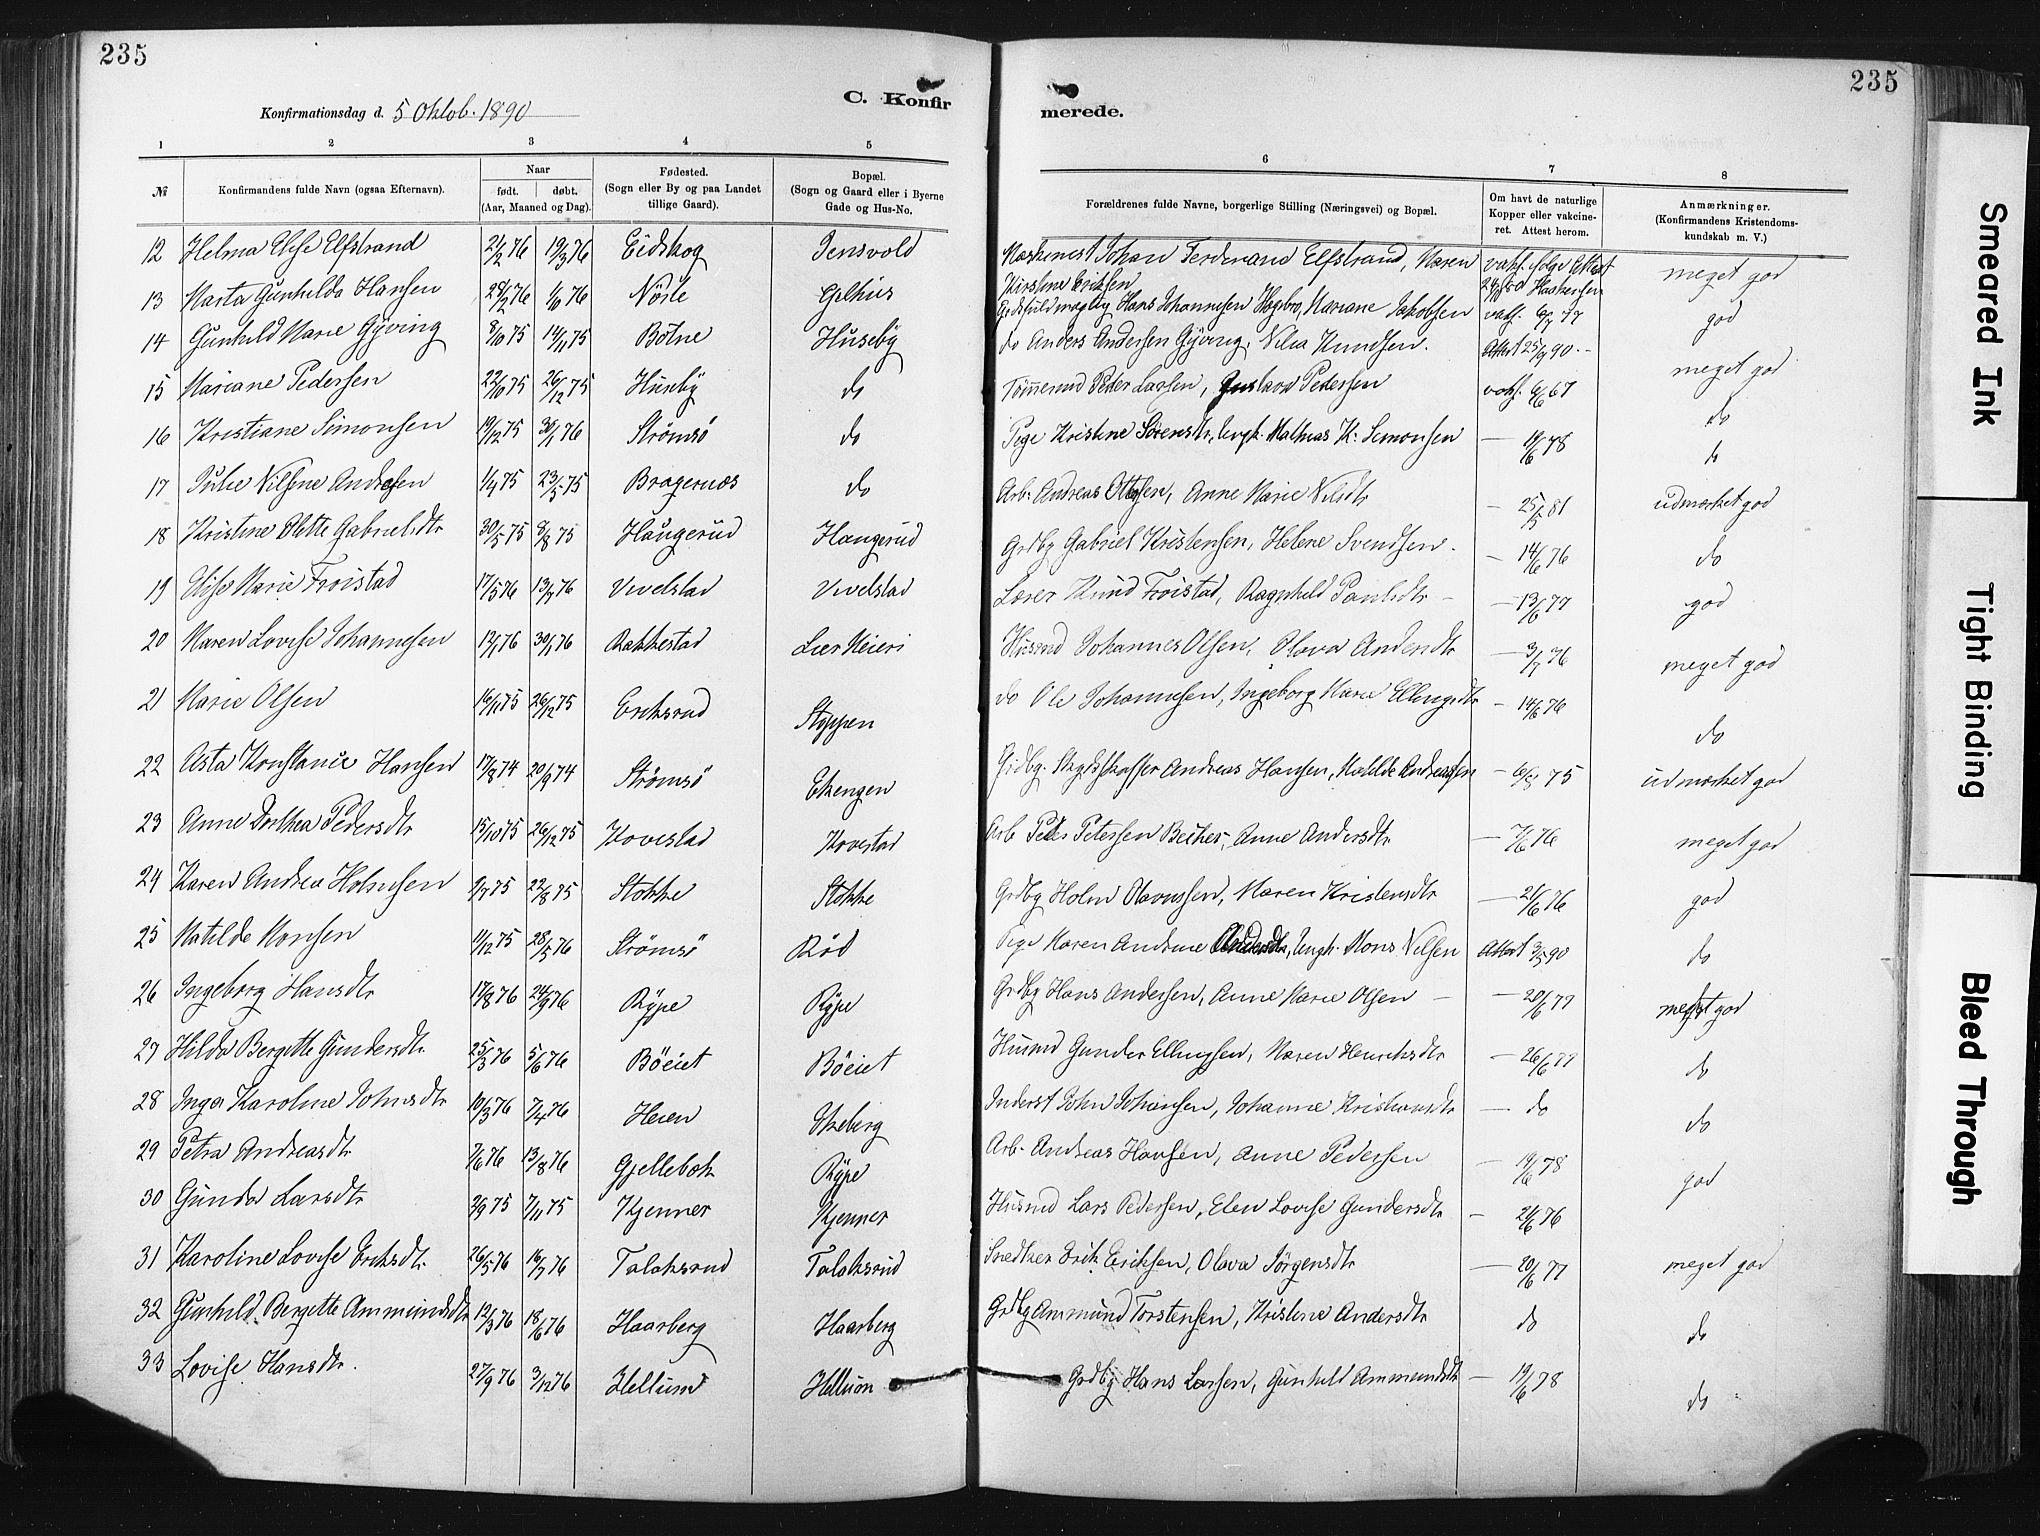 235
235
Konfirmationsdag d. 5 Oktob. 1890
C. Konfir
merede.
1 2 3 4 5 6 7 8
№ Konfirmandens fulde Navn (ogsaa Efternavn).
Naar
født. døbt.
(Aar, Maaned og Dag).
Fødested.
(Sogn eller By og paa Landet
tillige Gaard).
Bopæl.
(Sogn og Gaard eller i Byerne
Gade og Hus-No.
Forældrenes fulde Navne, borgerlige Stilling (Næringsvei) og Bopæl.
Om havt de naturlige
Kopper eller vakcine-
ret. Attest herom.
Anmærkninger.
(Konfirmandens Kristendoms-
kundskab m. V.)
12 Helma Elise Elfstrand 21/2 76 19/3 76 Eidskog Jensvold Johan Ferdinand Elfstrand, Maren meget god
Kirstine Eriksen
13 Marta Gunhilda Hansen 28/2 76 76 Gelhus Hans Johannesen Hogsbro, Mariane Jakobsen god
14 Gunhild Marie Gÿving 8/10 75 14/11 75 Botne Husebÿ do Anders Andersen Gÿving, Kundsen. Attest 25/9 90 meget god
15 Mariane Pedersen 22/10 75 26/12 75 Husebÿ do Tømmermd Peder Larsen, Gustava Pedersen 6/6 67 do
16 Kristiane Simonsen 19/12 75 30/1 76 Strømsö do Pige Kristine Sörensdtr, Ungk. Mathias K. Simonsen — 78 do
17 Julie Nilsine Andresen 1/4 75 23/5 75 Bragernæs do Arb. Andreas Ottesen, Anne Marie Nilsdtr — 25/5 81 udmærket god
18 Kristine Olette Gabrielsdtr 30/5 75 8/8 75 Haugerud Haugerud Grdbg Gabriel Kristensen, Helene Svendsen. — 14/6 76 do
19 Elise Marie Froistad 17/5 76 13/7 76 Vivelstad Vivelstad Lærer Knud Froistad, Ragnhild Paulsdtr — 13/6 77 god
20 Maren Lovise Johannesen 12/1 76 30/1 76 Rakkestad Lier Meieri Husmd Johannes Olsen, Olava Andersdtr — 3/7 76 meget god
21 Marie Olsen 16/11 75 26/12 75 Eriksrud Stoppen do Ole Johannesen, Ingeborg Marie Ellingsdtr — 14/6 76 do
22 Asta Konstance Hansen 17/8 74 20/9 74 Strømsö Ekengen Grdbg. Andreas Hansen, Matilde Andreassen — 75 udmærket god
23 Anne Dorthea Pedersdtr 15/10 75 26/12 75 Kovestad Kovestad Arb Peder Petersen Becher, Anne Andersdtr — 7/6 76 meget god
24 Karen Andrea Holmsen 9/7 75 22/8 75 Stokke Stokke Grdbg Holm Olavussen, Maren Kristensdtr — 21/6 76 god
25 Matilde Monsen 11/12 75 28/5 76 Strømsö Rød Pige Karen Andrine Ungk. Mons Nilsen Attest 3/5 90 do
26 Ingeborg Hansdtr 17/8 76 24/9 76 Rÿpe Rÿpe Grdbg Hans Andersen, Anne Marie Olsen — 20/6 77 meget god
27 Hilda Bergitte Gundersdtr. 25/3 76 5/6 76 Böeiet Böeiet Husmd Gunder Ellingsen, Maren Henriksdtr — 26/6 77 do
28 Inga Karoline Johnsdtr 10/3 76 7/4 76 Heien Ekeberg Inderst John Johansen, Johanne Kristiansdtr — do do
29 Petra Andreasdtr 7/6 76 13/8 76 Gjellebæk Rÿpe Arb. Andreas Hansen, Anne Pedersen — 19/6 78 god
30 Gunda Larsdtr 2/9 75 7/11 75 Kjenner Kjenner Husmd Lars Pedersen, Elen Lovise Gundersdtr — 21/6 76
31 Karoline Lovise Eriksdtr. 26/5 76 16/7 76 Tolaksrud Tolaksrud Snedker Erik Eriksen, Olava Jörgensdtr — 20/6 77 meget god
32 Gunhild Bergitte Ammundsdtr 12/3 76 18/6 76 Haarberg Haarberg Grdbg Ammund Torstensen, Kristine Andersdtr do do
33 Lovise Hansdtr. 27/9 76 3/12 76 Hellum Hellum Grdbg Hans Larsen, Gunhild Ammundsdtr — 19/6 78 do
Smeared Ink
Tight Binding
Bleed Through